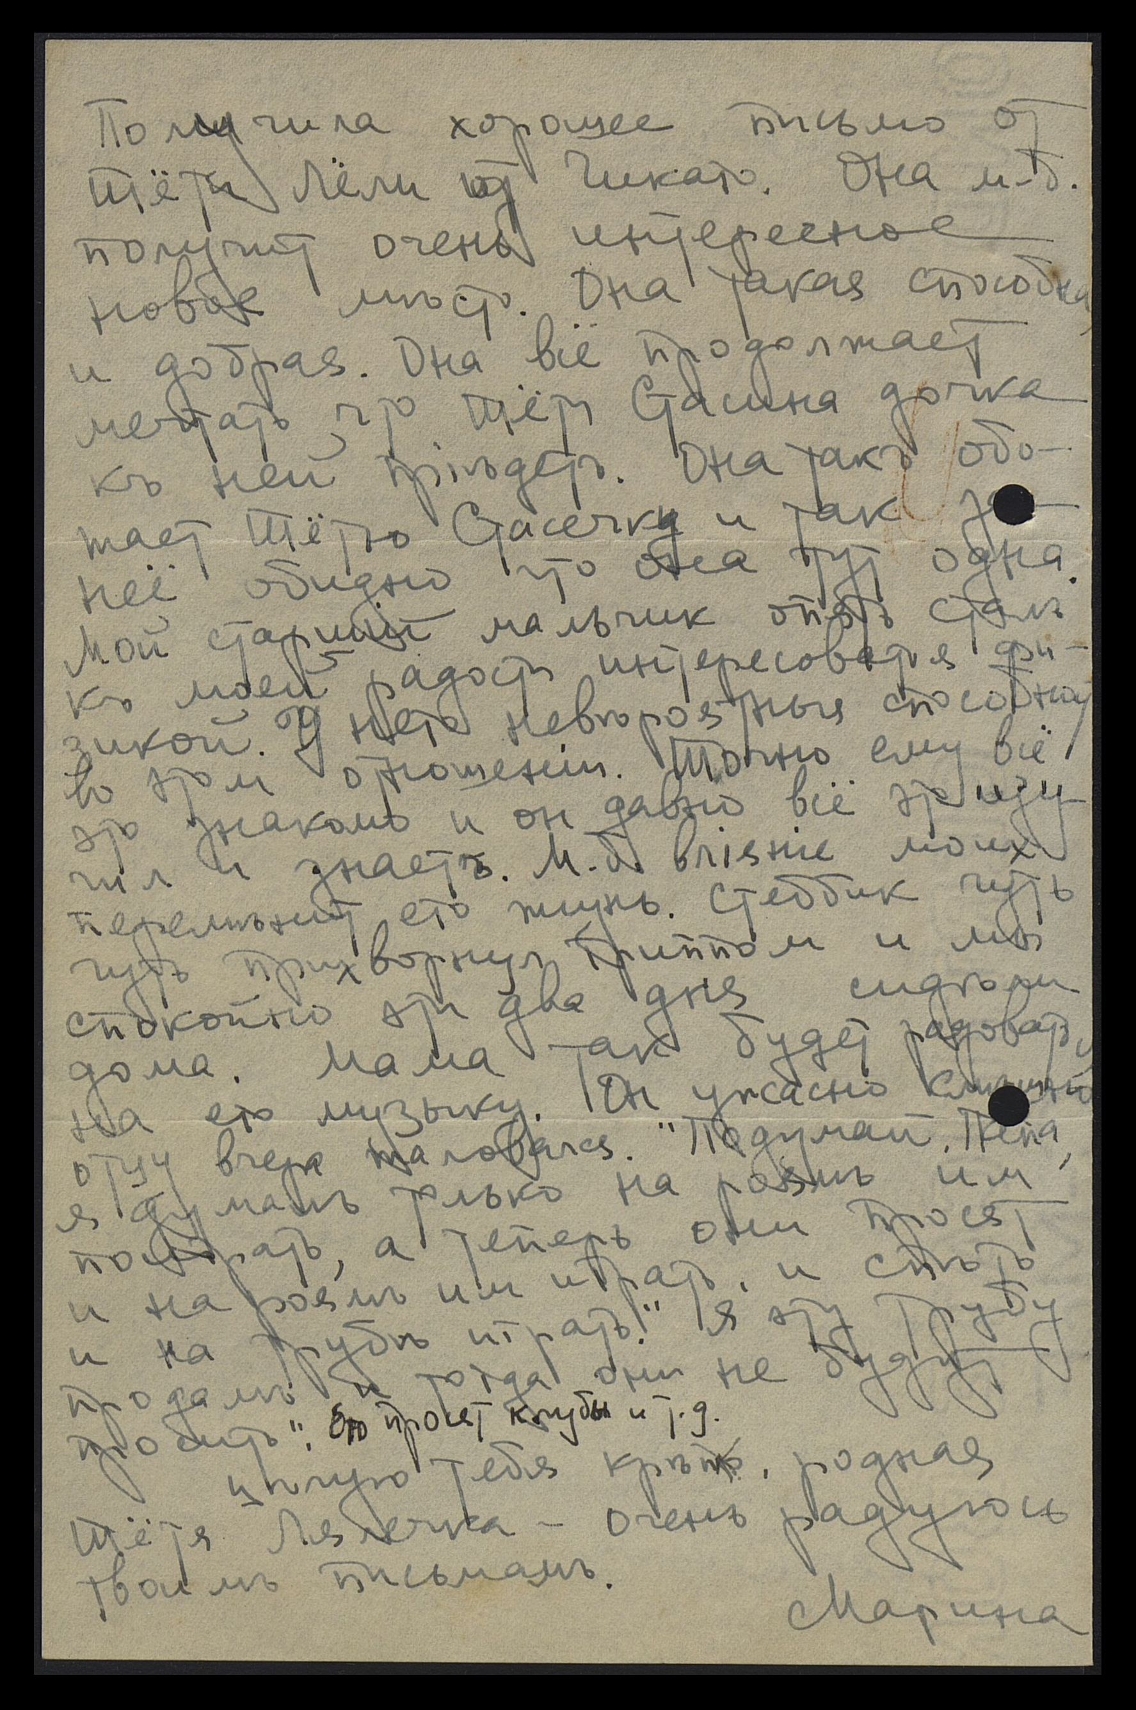 Получила хорошее письмо от
Тёти Лёли из Чикаго. Она м-б.
получит очень интересное
новое мѣсто. Она такая способная
и добрая. Она всё продолжает
мечтать что Тёти Стасина дочка
къ ней пріѣдетъ. Она такъ обо-
жает Тётю Стасечку и так за
неё обидно что она тут одна.
Мой старшій мальчик опять сталъ
къ моей радости интересоваться фи-
зикой. У него невѣроятныя способности
во этом отношеніи. Точно ему всё
это знакомо и он давно всё это изу-
чил и знаетъ. М.б. вліяніе моих
перемѣнит его жизнь. Стеббик чуть
чуть прихворнул гриппом и мы
спокойно эти два дня сидѣли
дома. Мама так будет радоваться
на его музыку. Он ужасно
отцу вчера жаловался. "Подумай, Пепа,
я думалъ только на роялѣ им
поиграть, а теперь они просят
и на роялѣ им играть, и спѣть
и на трубѣ играть." Я эту трубу
продамъ и тогда они не будут
просить". Его просят клубы и т.д.
Цѣлую тебя крѣпко, родная
Тётя Лялечка – очень радуюсь
твоимъ письмамъ.
Марина